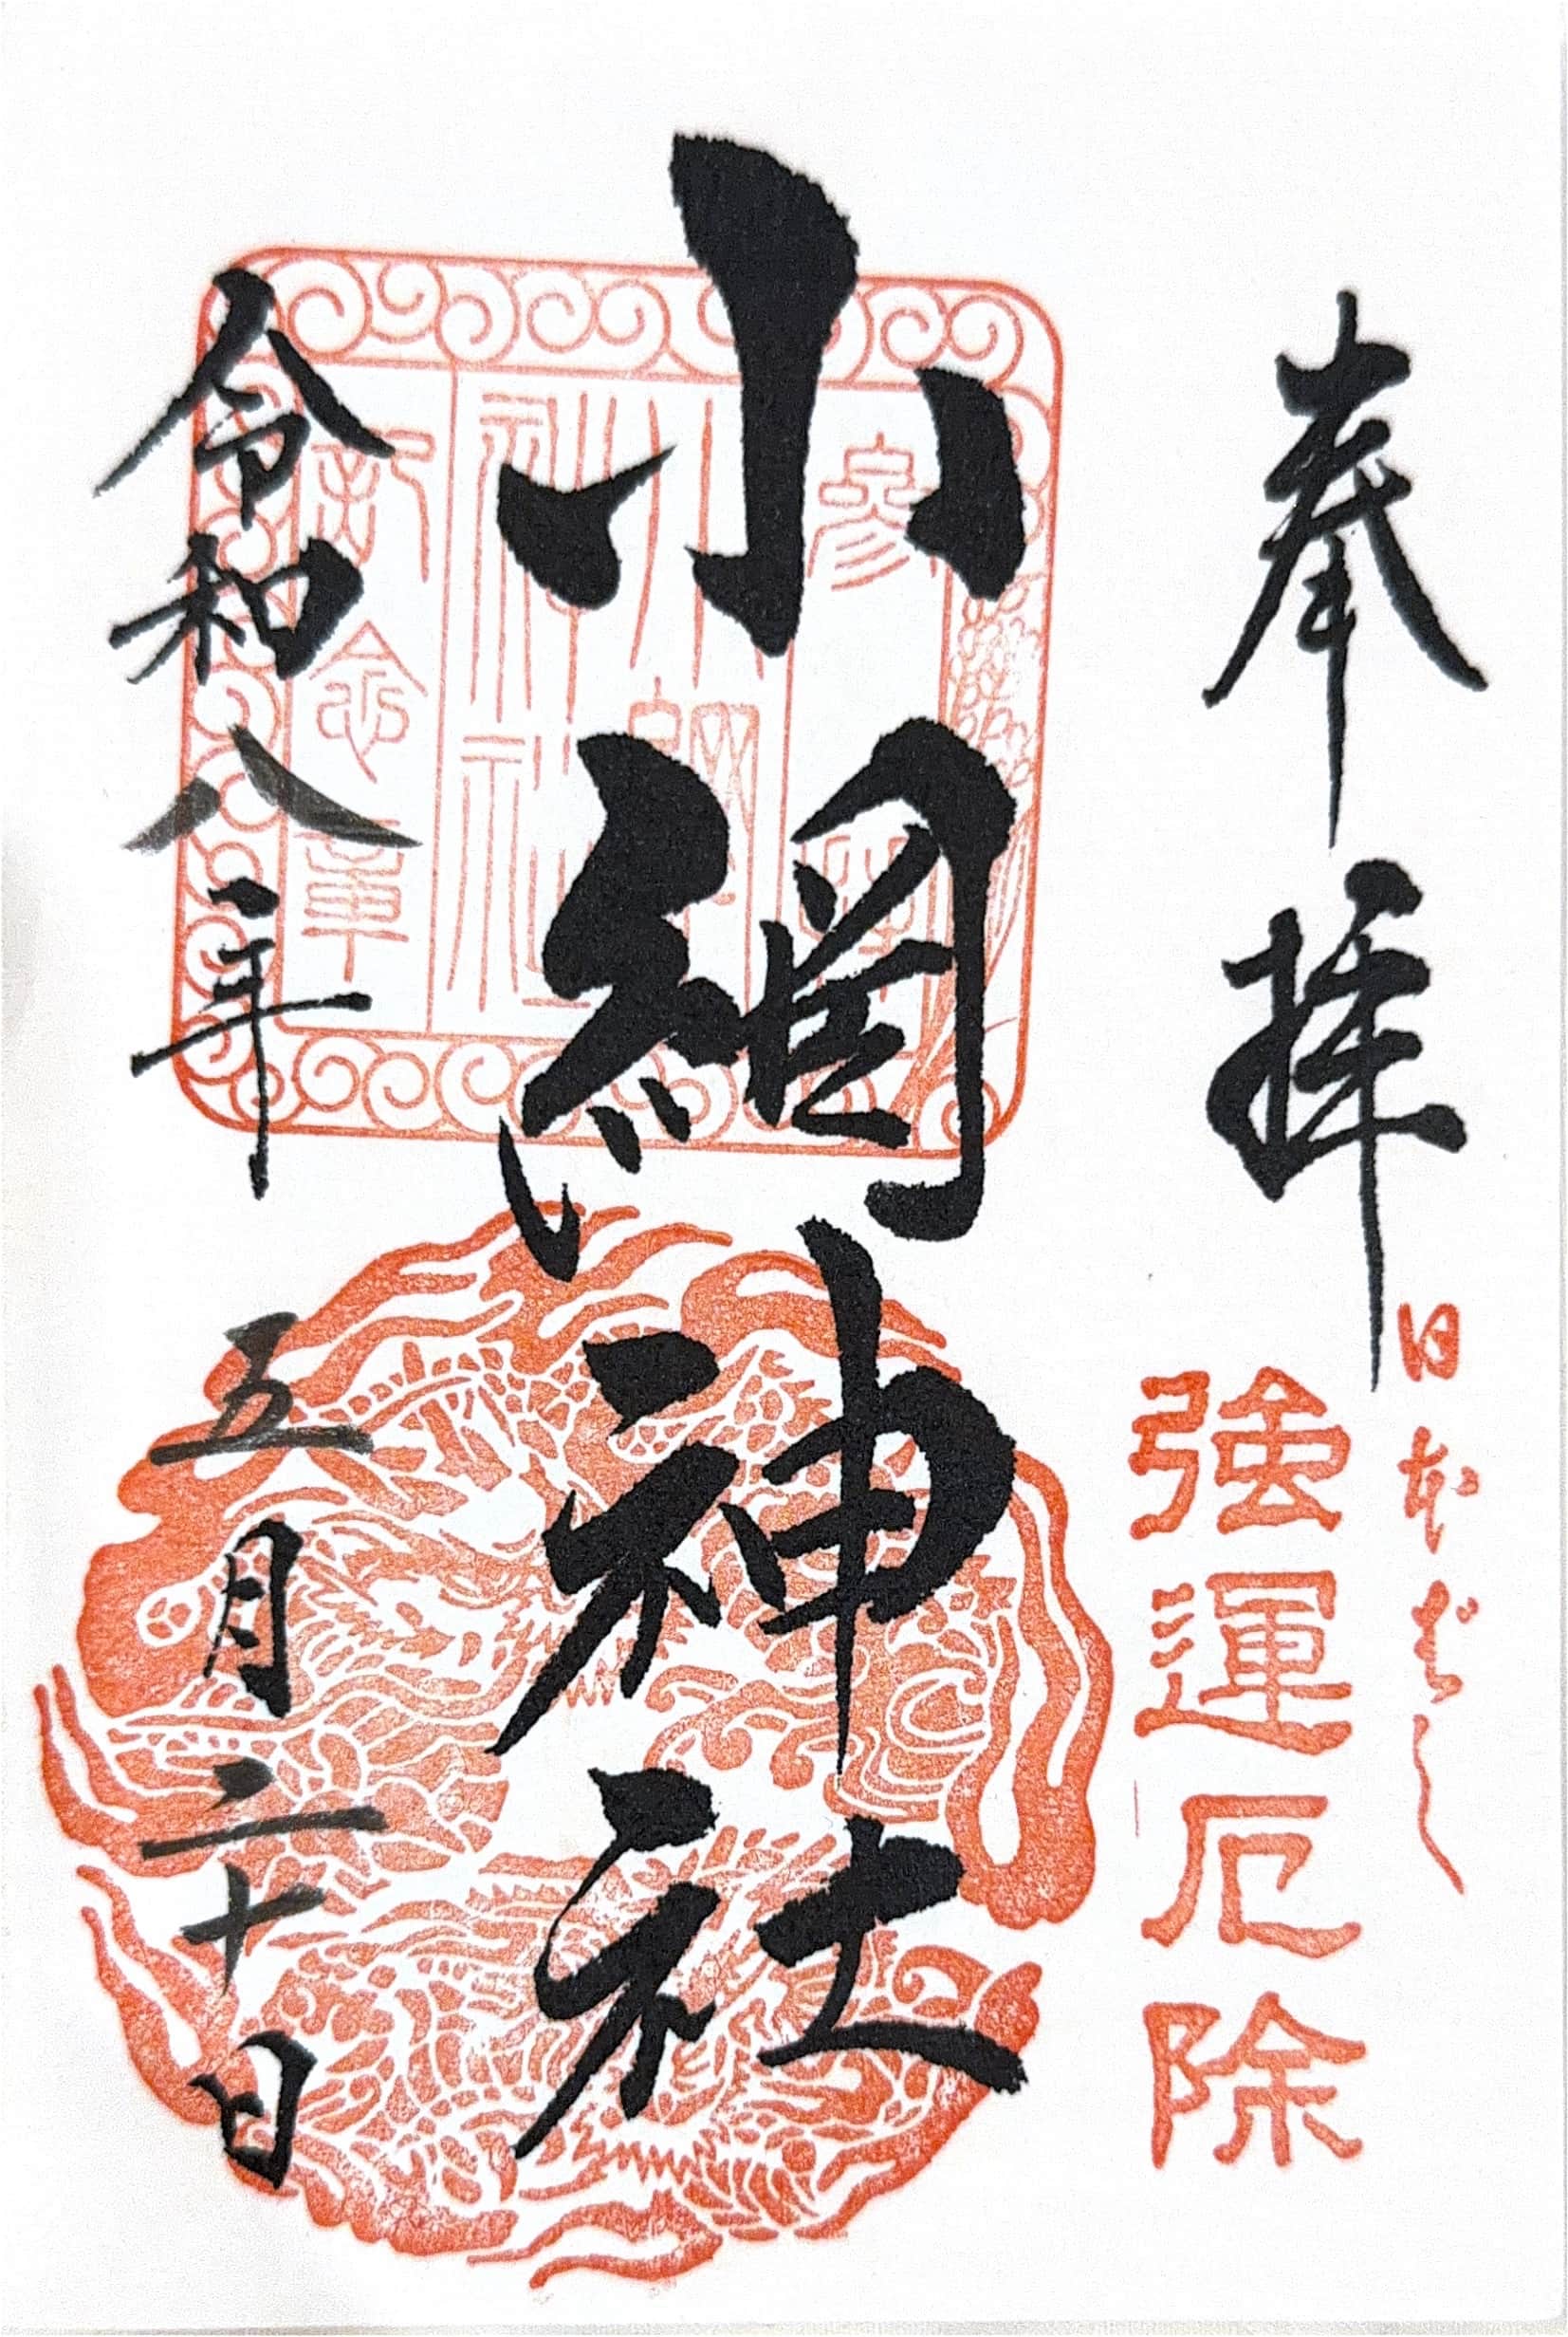 奉拝
日本ばし
強運厄除
小網神社
参拝
小網神社
記念章
令和八年 五月二十日